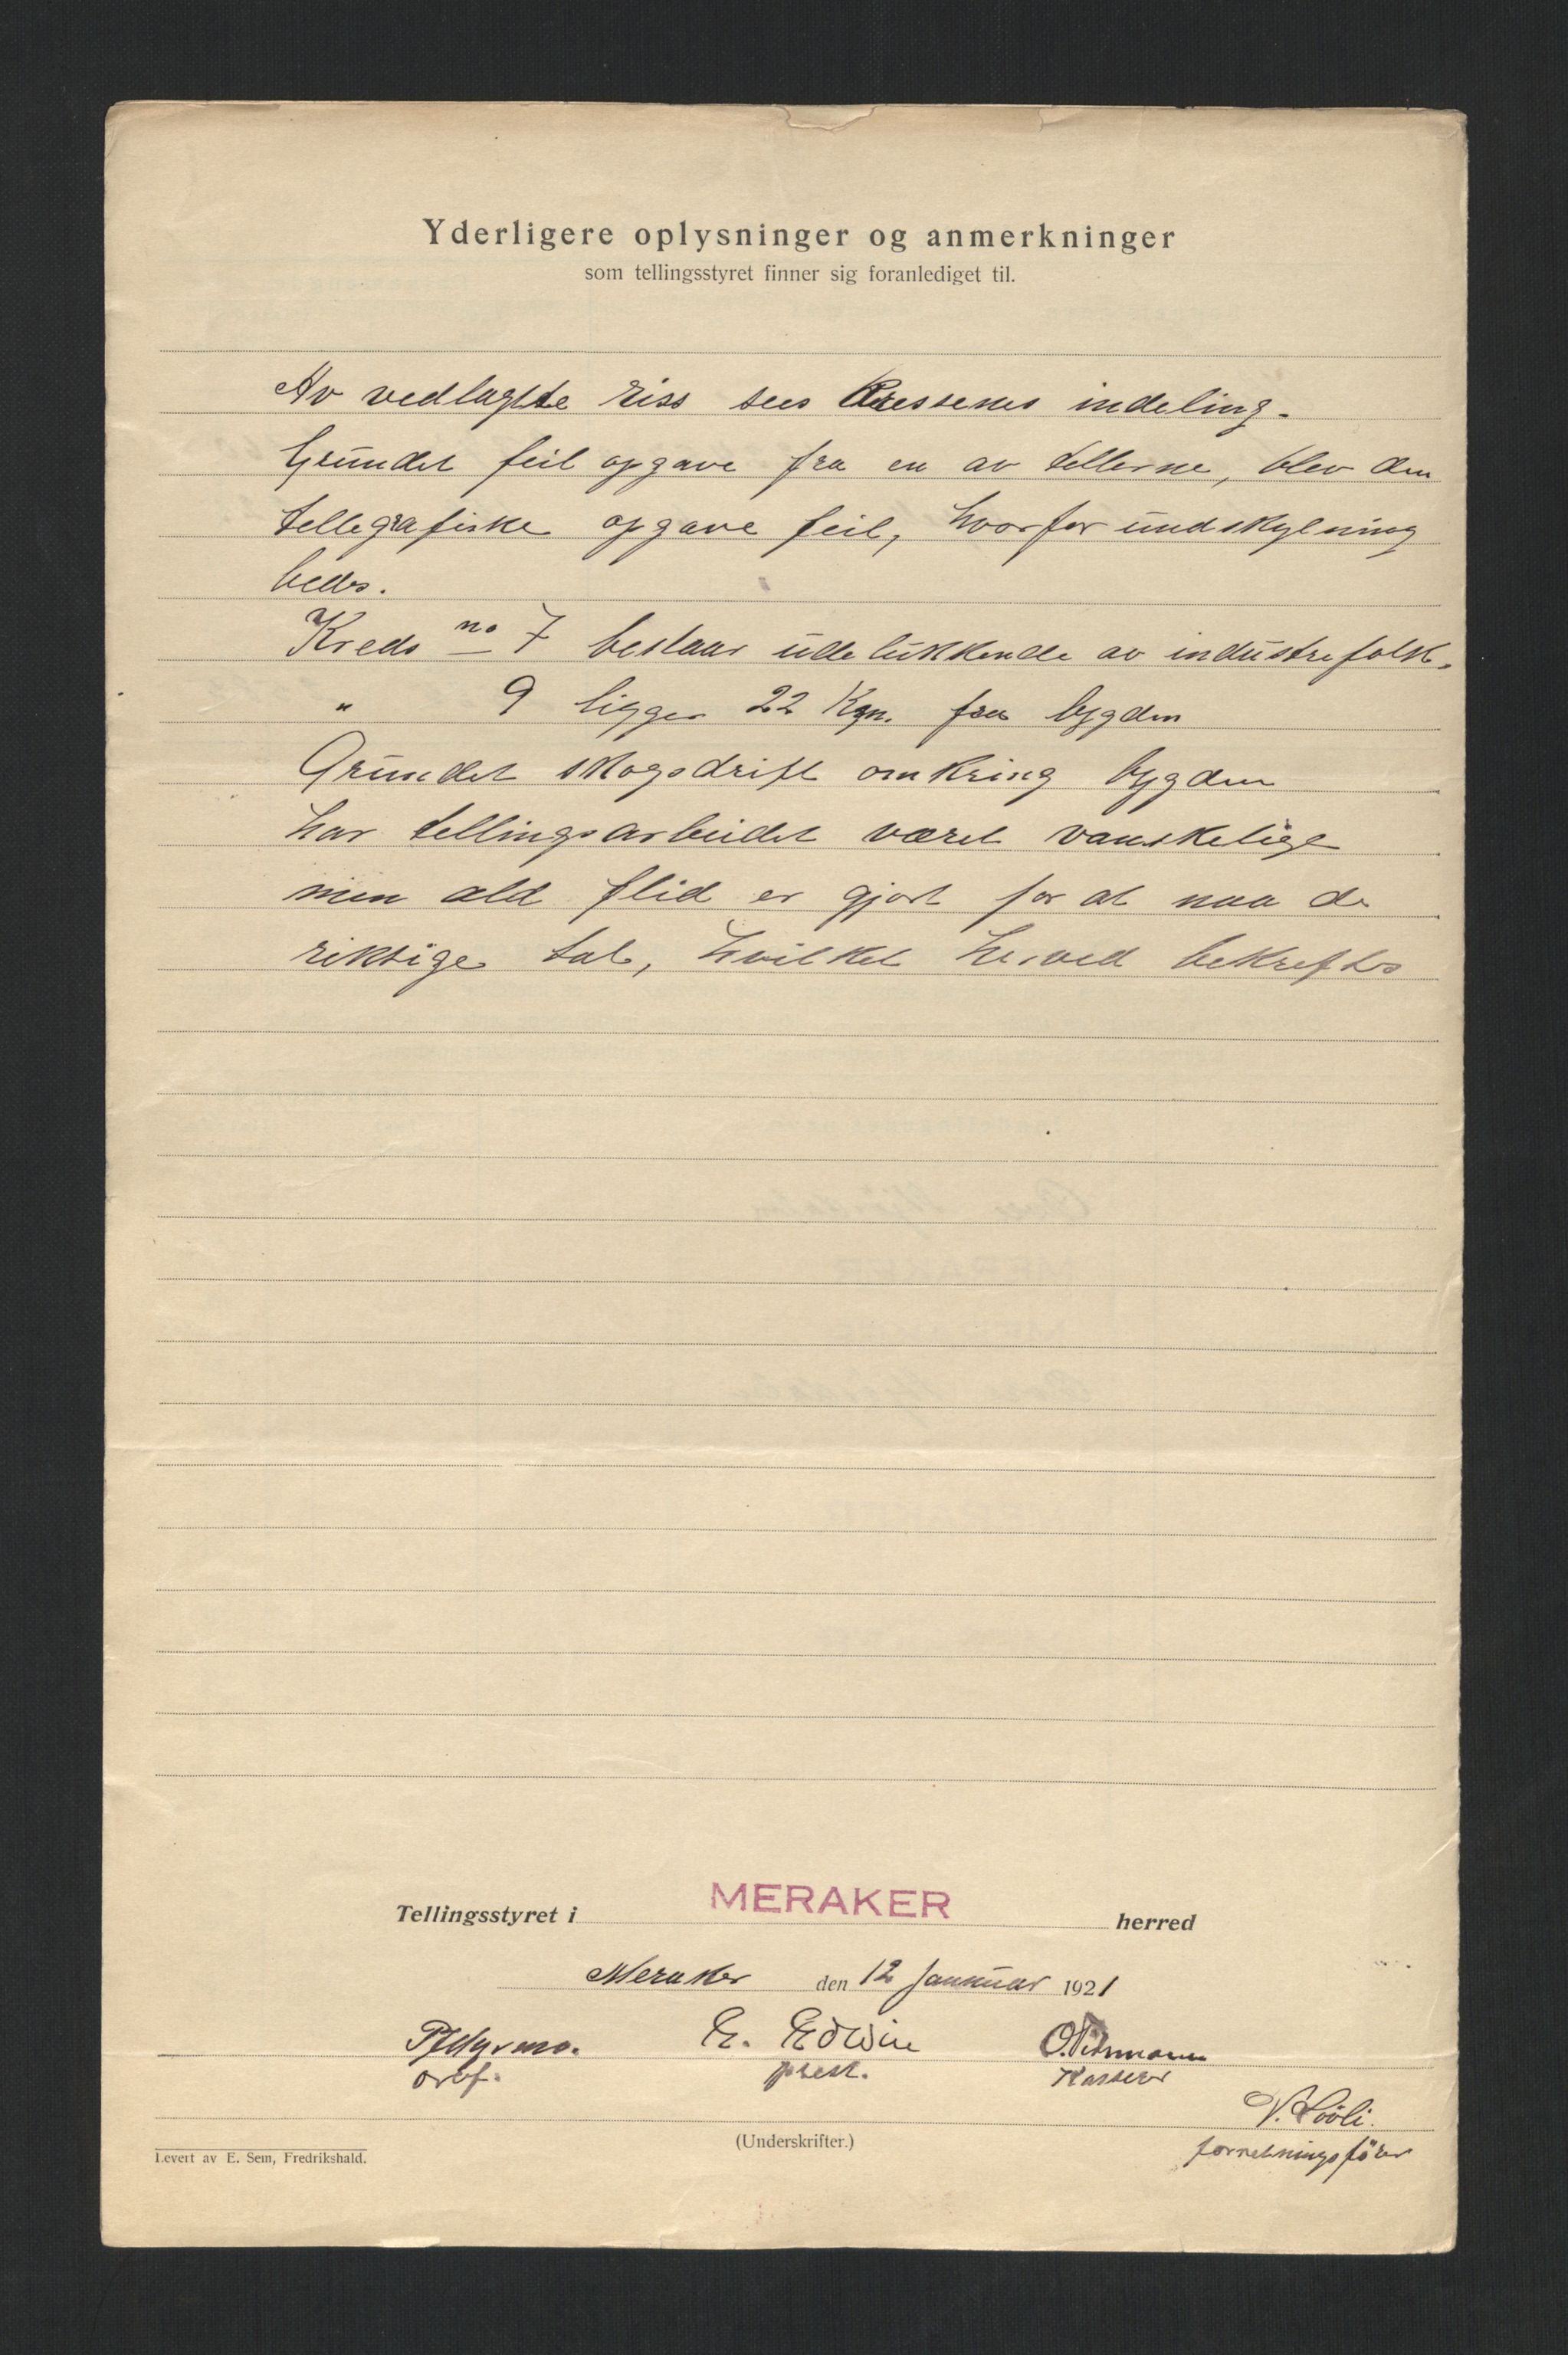 Yderligere oplysninger og anmerkninger
som tellingsstyret finner sig foranlediget til.
Av vedlagte riss sees indeling.
Grundet feil opgave fra en av tellerne, blev den
tellegrafiske opgave feil, hvorfor undskylning
bedes.
Kreds no 7 bestaar udelukkende av industrifolk.
" 9 ligger 22 Km. fra bygden
Grundet skogsdrift omkring bygden
har tellingsarbeidet været vanskelige
men ald flid er gjort for at naa de
riktige tal, hvilket herved bekreftes
Tellingsstyret i MERAKER herred
Meraker den 12 Januar 1921
E. Edwin
orf. prest. Kasserer
forretningsfører
(Underskrifter.)
Levert av E. Sem, Fredrikshald.